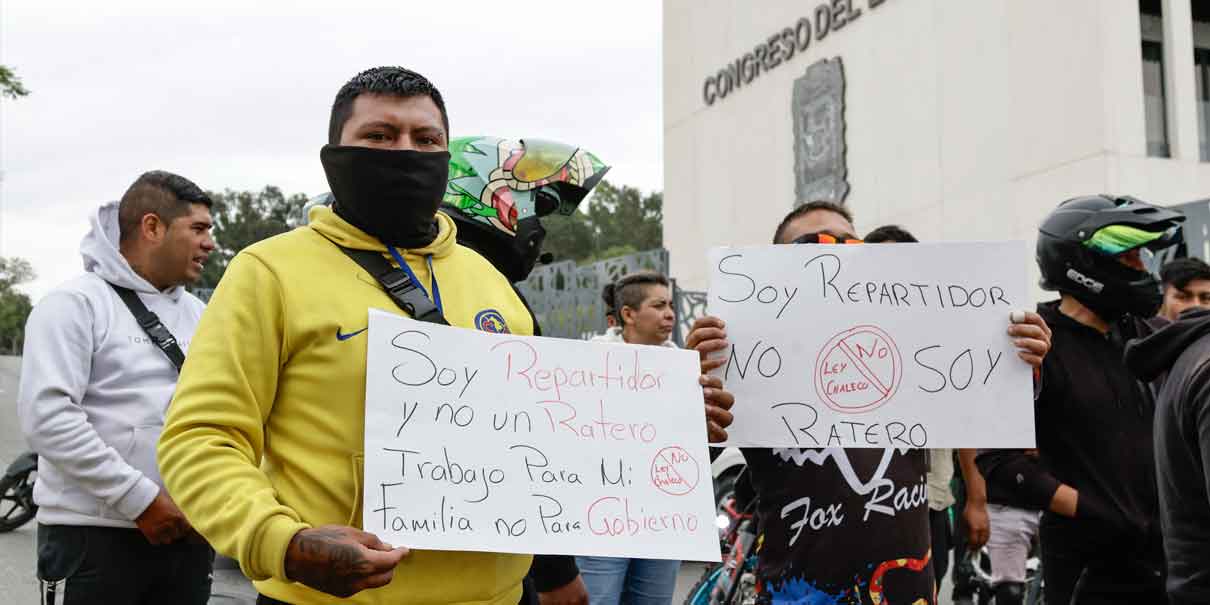 CONGRESO DEL
TOMM
Soy Repartidor
y no un Ratero
Trabajo Para Mi
Familia no Para Gobierno
No
Ley
Chaleco
Soy Repartidor
No
No
Ley
Chaleco
Soy
Ratero
EDGE
Fox Racing